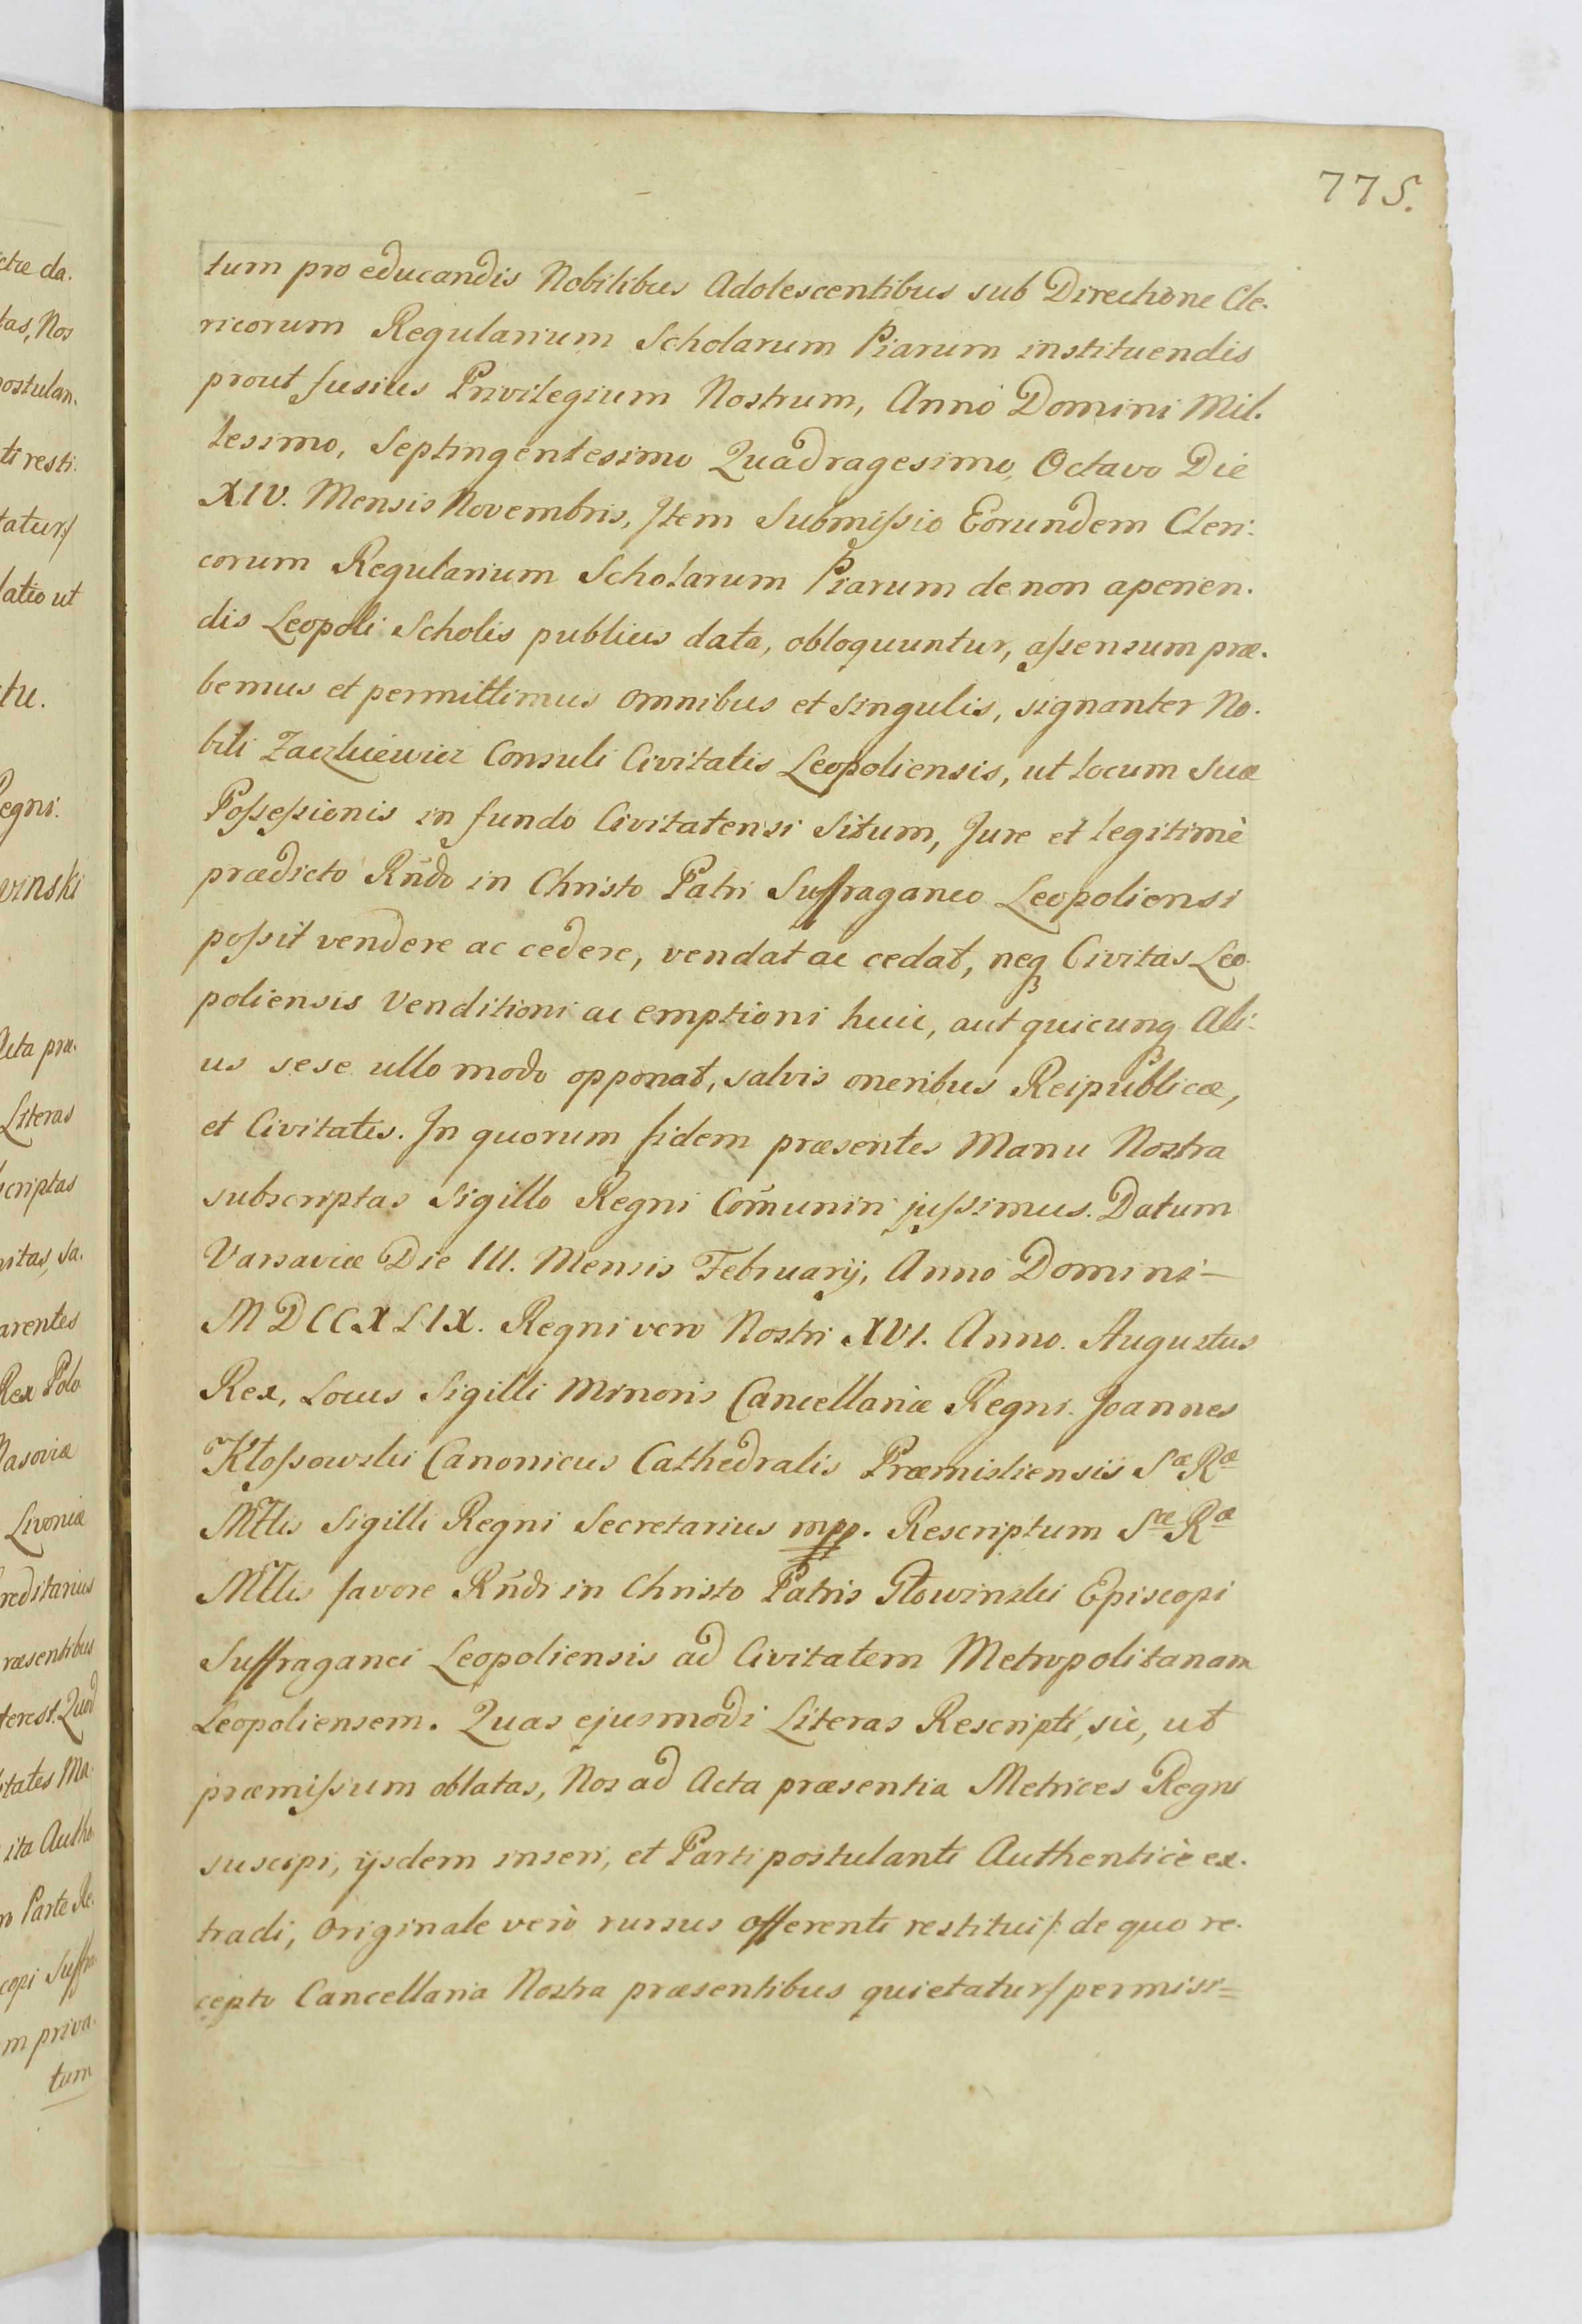 775.
tum pro educandis Nobilibus Adolescentibus sub Directione Cle-
ricorum Regularium Scholarum Piarum instituendis
prout fusius Privilegium Nostrum, Anno Domini Mil-
lesimo, Septingentesimo Quadragesimo, Octavo Die
XIV. Mensis Novembris, Item Submissio Eorundem Cleri-
corum Regularium Scholarum Piarum de non aperien-
dis Leopoli Scholis publicis data, obloquuntur, assensum præ-
bemus et permittimus omnibus et singulis, signanter No-
bili Consuli Civitatis Leopoliensis, ut locum suæ
Possessionis in fundo Civitatensi Situm, Jure et legitimè
prædicto Rñdo in Christo Patri Suffraganeo Leopoliensi
possit vendere ac cedere, vendat ac cedat, neq Civitas Leo-
poliensis Venditioni ac emptioni huic, aut quicunq Ali-
us sese ullo modo opponat, salvis oneribus Reipublicæ,
et Civitatis. In quorum fidem præsentes Manu Nostra
subscriptas Sigillo Regni Com̃uniri jussimus. Datum
Varsaviæ Die III. Mensis Februarij, Anno Domini —
MDCCXLIX. Regni vero Nostri XVI. Anno. Augustus
Rex, Locus Sigilli Minoris Cancellariæ Regni. Joannes
Kłossowski Canonicus Cathedralis Præmisliensis Sæ Ræ
Mttis Sigilli Regni Secretarius mpp. Rescriptum Sæ Ræ
Mttis favore Rñdi in Christo Patris Głowinski Episcopi
Suffraganei Leopoliensis ad Civitatem Metropolitanam
Leopoliensem. Quas ejusmodi Literas Rescripti, sic, ut
præmissum oblatas, Nos ad Acta præsentia Metrices Regni
suscipi, ijsdem inseri, et Parti postulanti Authenticè ex-
tradi, Originale verò rursus offerenti restitui /: de quo re-
cepto Cancellaria Nostra præsentibus quietatur :/ permisi=